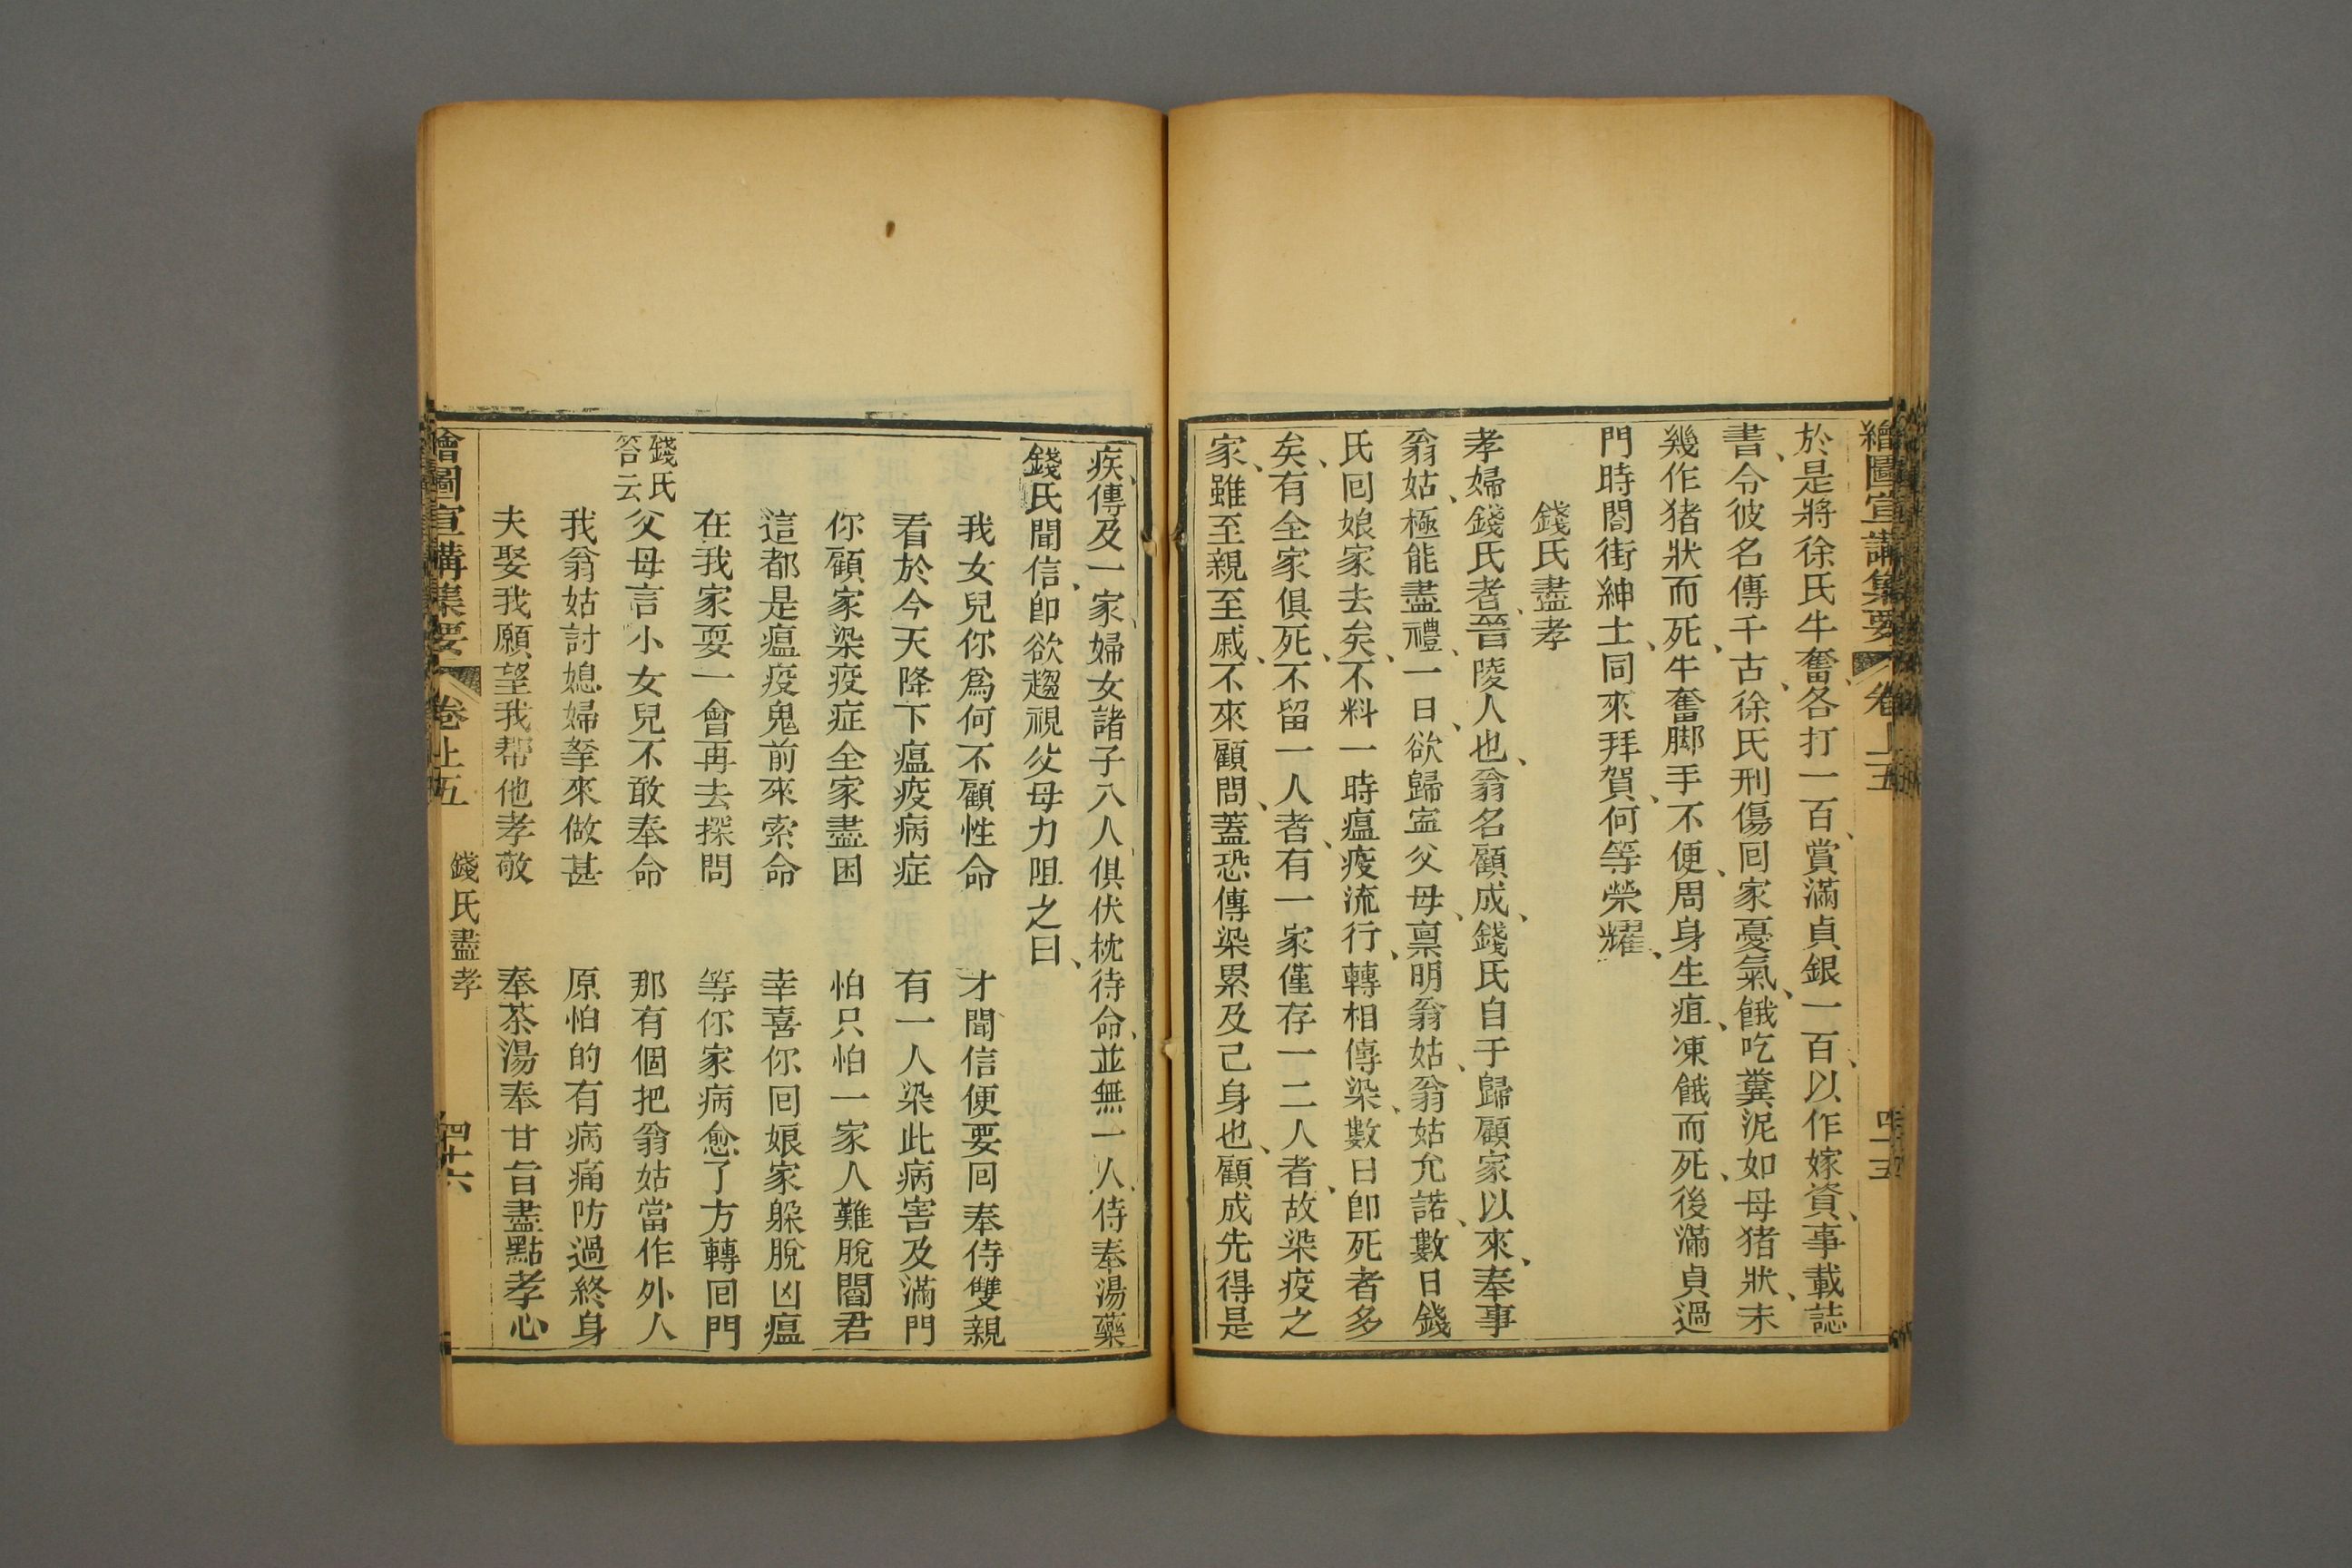 繪圖宣講集要 卷上五 四十五
於是將徐氏牛奮、各打一百、賞滿貞銀一百、以作嫁資、事載誌
書、令彼名傳千古、徐氏刑傷囘家憂氣、餓吃糞泥如母猪狀、未
幾作猪狀而死、牛奮脚手不便、周身生疽、凍餓而死、後滿貞過
門時、閤街紳士、同來拜賀、何等榮耀、
錢氏盡孝
孝婦錢氏者、晉陵人也、翁名顧成、錢氏自于歸顧家以來、奉事
翁姑、極能盡禮、一日、欲歸寍父母、禀明翁姑、翁姑允諾、數日錢
氏囘娘家去矣、不料一時瘟疫流行、轉相傳染、數日卽死者多
矣、有全家俱死、不留一人者、有一家僅存一二人者、故染疫之
家、雖至親至戚、不來顧問、蓋恐傳染累及己身也、顧成先得是
疾、傳及一家、婦女諸子八人、俱伏枕待命、並無一人、侍奉湯藥
錢氏聞信、卽欲趨視、父母力阻之曰、
我女兒你爲何不顧性命 才聞信便要囘奉侍雙親
看於今天降下瘟疫病症 有一人染此病害及滿門
你顧家染疫症全家盡困 怕只怕一家人難脫閻君
這都是瘟疫鬼前來索命 幸喜你囘娘家躱脫凶瘟
在我家耍一會再去探問 等你家病愈了方轉囘門
錢氏答云 父母言小女兒不敢奉命 那有個把翁姑當作外人
我翁姑討媳婦拏來做甚 原怕的有病痛防過終身
夫娶我願望我帮他孝敬 奉茶湯奉甘旨盡點孝心
繪圖宣講集要 卷上五 錢氏盡孝 四十六